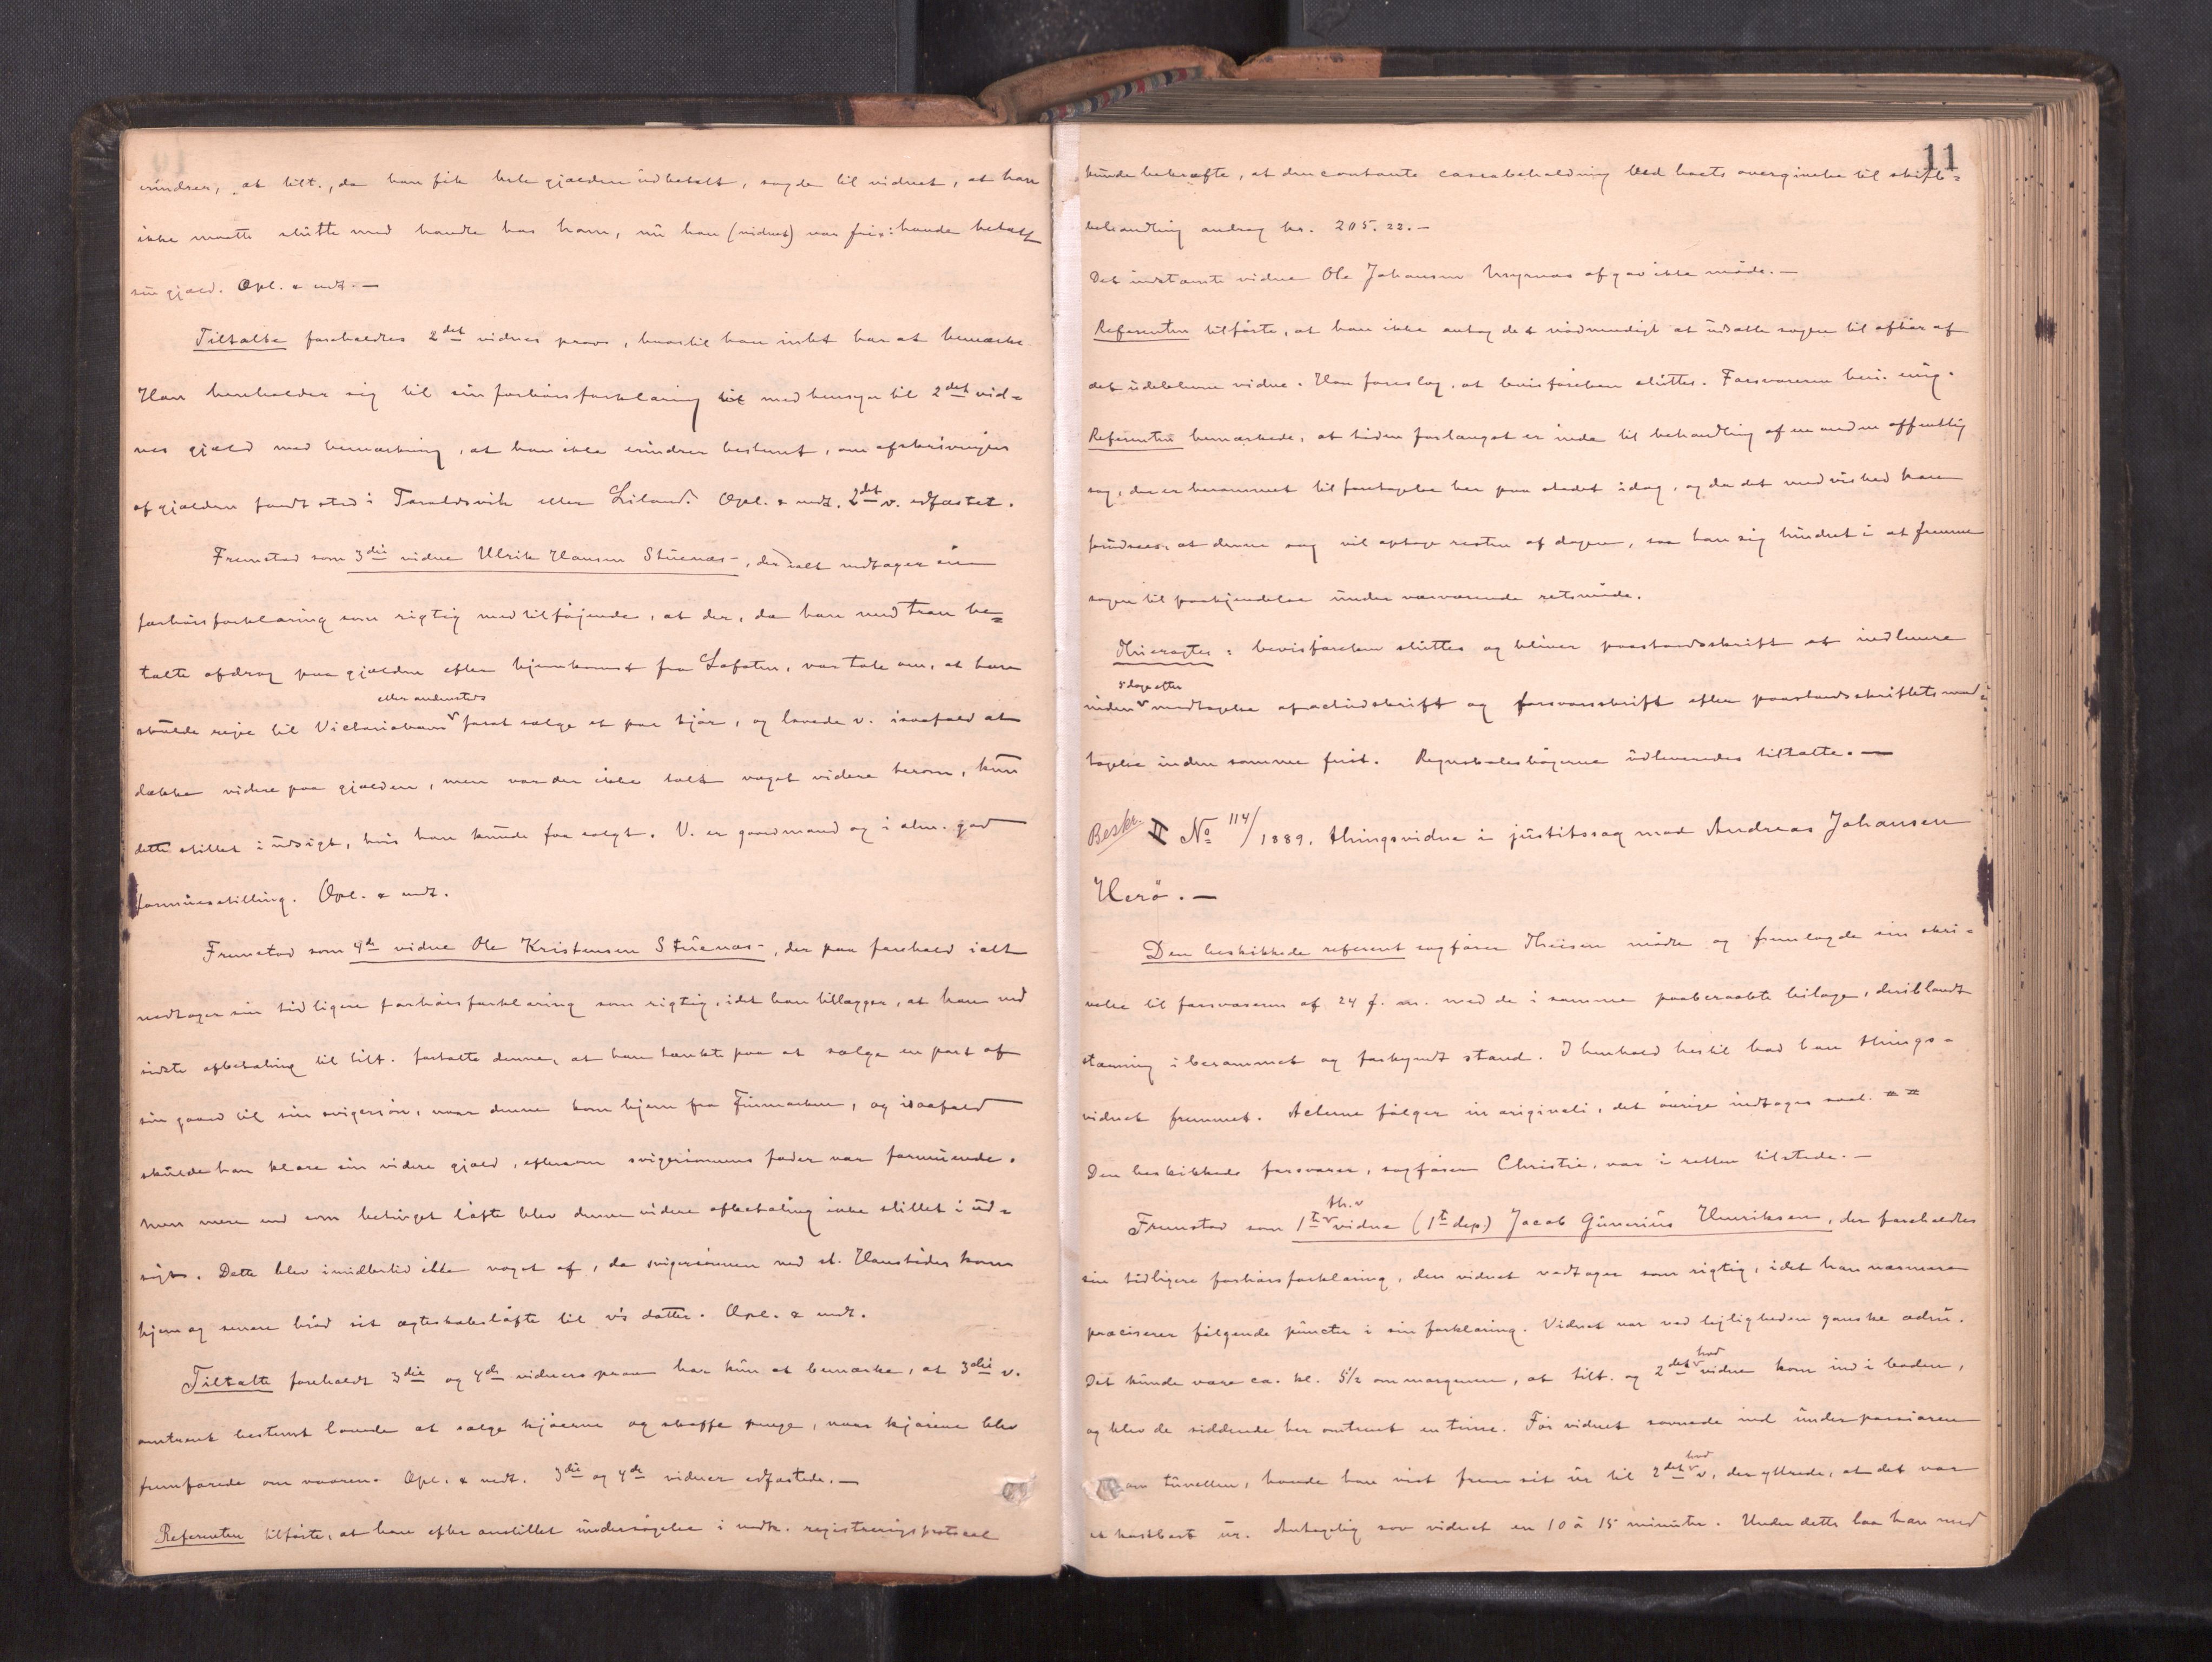 erindrer, at tilt., da han fik hele gjælden udbetalt, sagde til vidnet, at han
ikke maatte slutte med handle hos ham, nu han (vidnet) var fri ɔ: havde betalt
sin gjæld. Opl. & vedt. —
Tiltalte foreholdtes 2det vidnes prov, hvortil han intet har at bemærke
Han henholder sig til sin forhörsforklaring med hensyn til 2det vid-
nes gjæld med bemærkning, at han ikke erindrer bestemt, om afskrivningen
af gjælden fandt sted i Taraldsvik eller Liland. Opl. & vedt. 2det v. edfæstet.
Fremstod som 3die vidne Ulrik Hansen Stuenæs —, der ialt vedtager sin
forhörsforklaring som rigtig med tilföjende, at der, da han med tran be-
talte afdrag paa gjælden efter hjemkomst fra Lofoten, var tale om, at han
eller andensteds
skulde rejse til Victoriahavn for at sælge et par kjör, og lovede v. isaafald at
dække videre paa gjælden, men var der ikke talt noget videre herom, kun
dette stillet i udsigt, hvis han kunde faa solgt. V. er gaardmand og i alm. god
formuesstilling. Opl. & vedt.
Fremstod som 4de vidne Ole Kristensen Stuenæs —, der paa forehold ialt
vedtager sin tidligere forhörsforklaring som rigtig, idet han tillægger, at han ved
sidste afbetaling til tilt. fortalte denne, at han tænkte paa at sælge en part af
sin gaard til sin svigersön, naar denne kom hjem fra Finmarken, og isaafald
skulde han klare sin videre gjæld, eftersom svigersönnens fader var formuende.
Men mere end som betinget löfte blev denne videre afbetaling ikke stillet i ud-
sigt. Dette blev imidlertid ikke noget af, da svigersönnen ved st. Hanstider kom
hjem og senere bröd sit ægteskabslöfte til v's datter. Opl. & vedt.
Tiltalte foreholdt 3die og 4de vidners prov har kun at bemærke, at 3die v.
omtrent bestemt lovede at sælge kjörene og skaffe penge, naar kjörene blev
fremforede om vaaren. Opl. & vedt. 3die og 4de vidner edfæstede. —
Referenten tilförte, at han efter anstillet undersögelse i vedk. registreringsprotocol
11
kunde bekræfte, at den contante cassabeholdning ved boets overgivelse til skifte-
behandling androg kr. 205.22. —
Det indstævnte vidne Ole Johansen afgav ikke möde. —
Referenten tilförte, at han ikke antog det nödvendigt at udsætte sagen til afhör af
det udeblevne vidne. Han foreslog, at bevisförelsen sluttes. Forsvareren heri enig.
Referenten bemærkede, at tiden forlængst er inde til behandling af en anden offentlig
sag, der er berammet til foretagelse her paa stedet idag, og da det med vished kan
forudsees, at denne sag vil optage resten af dagen, saa han sig hindret i at fremme
sagen til paakjendelse under nærværende retsmöde.
Thi eragtes: bevisförelsen sluttes og bliver paastandsskrift at indlevere
8 dage efter
inden modtagelse af actudskrift og forsvarsskrift efter paastandsskriftets mod-
tagelse inden samme frist. Regnskabsbögerne udleveredes tiltalte. —
Beskr. II No 114/1889. Thingsvidne i justitssag mod Andreas Johansen
Herö. —
Den beskikkede referent sagförer Theisen mödte og fremlagde sin skri-
velse til forsvareren af 24 f. m. med de i samme paaberaabte bilage, deriblandt
stævning i berammet og forkyndt stand. I henhold hertil bad han things-
vidnet fremmet. Acterne fölger in originali, det övrige indtages
Den beskikkede forsvarer, sagförer Christie, var i retten tilstede. —
th.v
Fremstod som 1te vidne (1te dep.) Jacob Gunerius Henriksen, der foreholdtes
sin tidligere forhörsforklaring, den vidnet vedtager som rigtig, idet han nærmere
præciserer fölgende puncter i sin forklaring. Vidnet var ved lejligheden ganske ædru.
hov
Det kunde være ca. kl. 5½ om morgenen, at tilt. og 2det vidne kom ind i boden,
og blev de siddende her omtrent en time. För vidnet sovnede ind under passiaren
hov
om havde han vist frem sit ur til 2det v, der yttrede, at det var
et kostbart ur. Antagelig sov vidnet en 10 à 15 minuter. Under dette laa han med